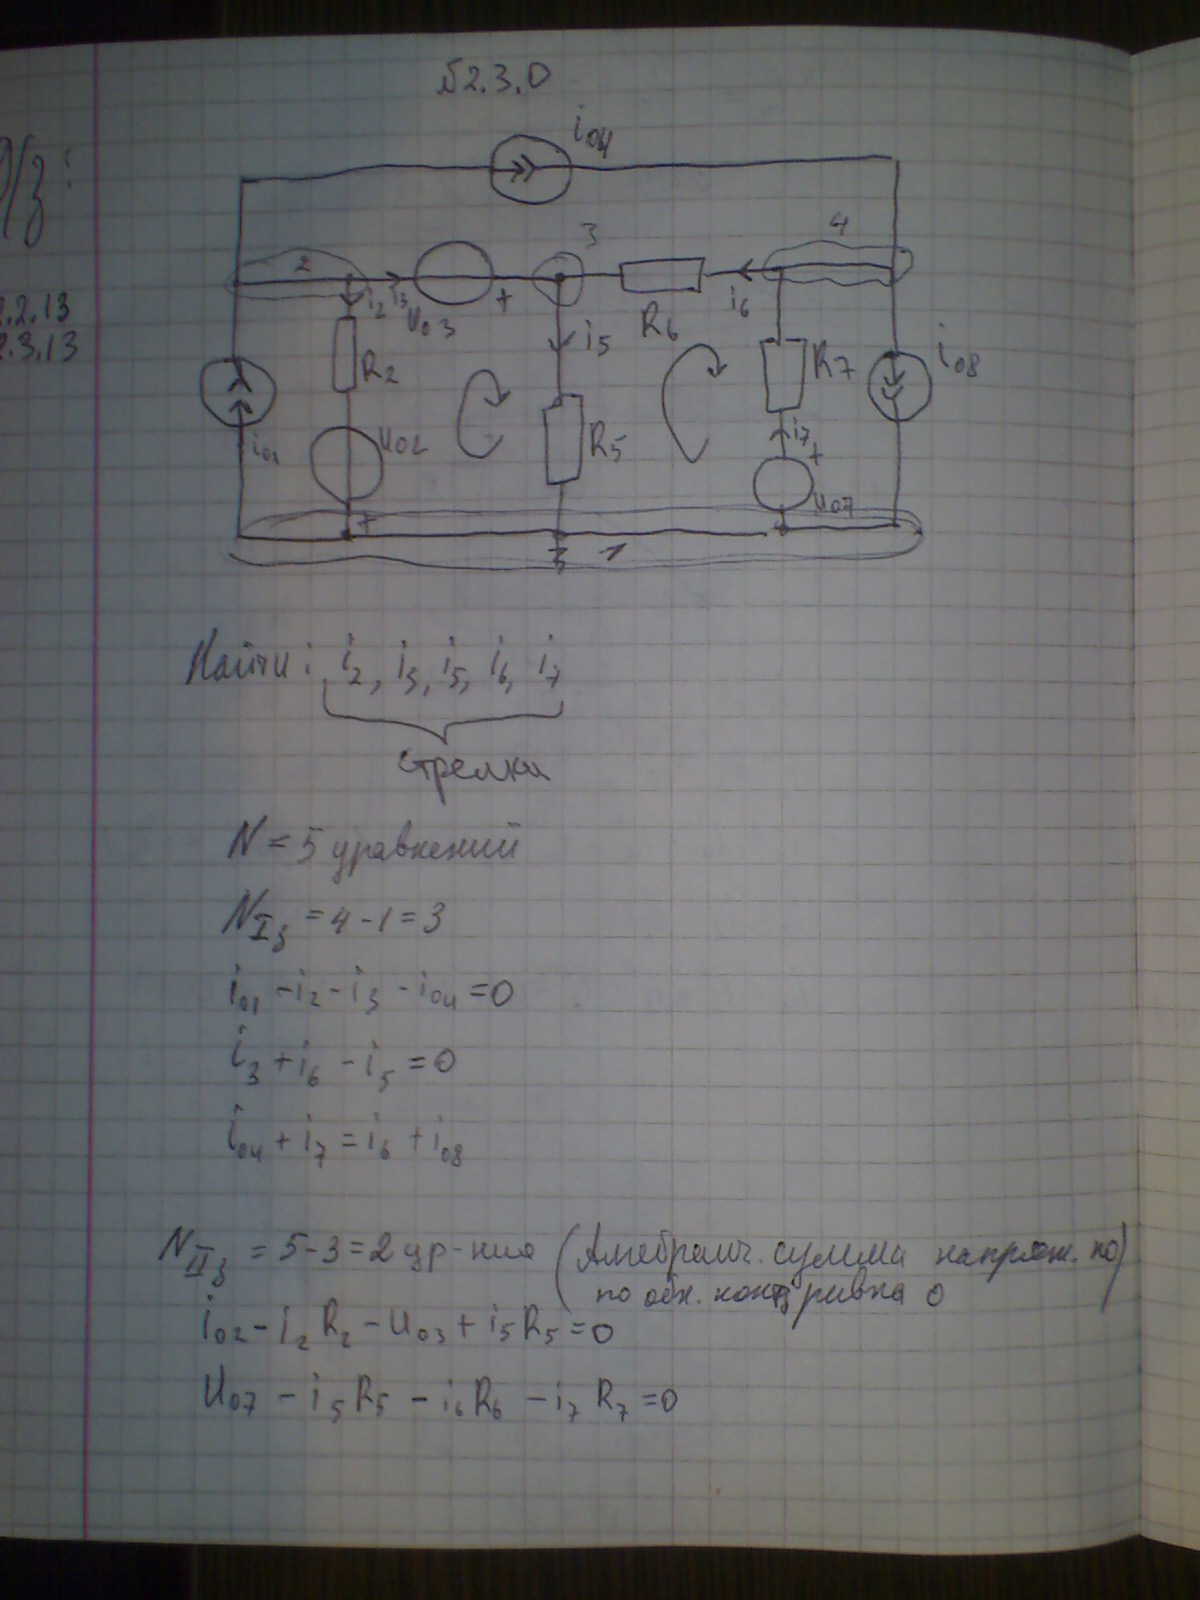 №2.3.0
Д/з:
2.2.13
2.3.13
i04
2
3
4
i2 i3
U03
+
i5
R6
i6
R2
R7
i08
i01
U02
R5
i7
+
U07
+
1
Найти: i2, i3, i5, i6, i7
стрелки
N = 5 уравнений
NIз = 4 - 1 = 3
i01 - i2 - i3 - i04 = 0
i3 + i6 - i5 = 0
i04 + i7 = i6 + i08
NIIз = 5 - 3 = 2 ур-ния (Алебраич. сумма напряж. по)
по обх. равна 0
i02 - i2 R2 - U03 + i5 R5 = 0
U07 - i5 R5 - i6 R6 - i7 R7 = 0